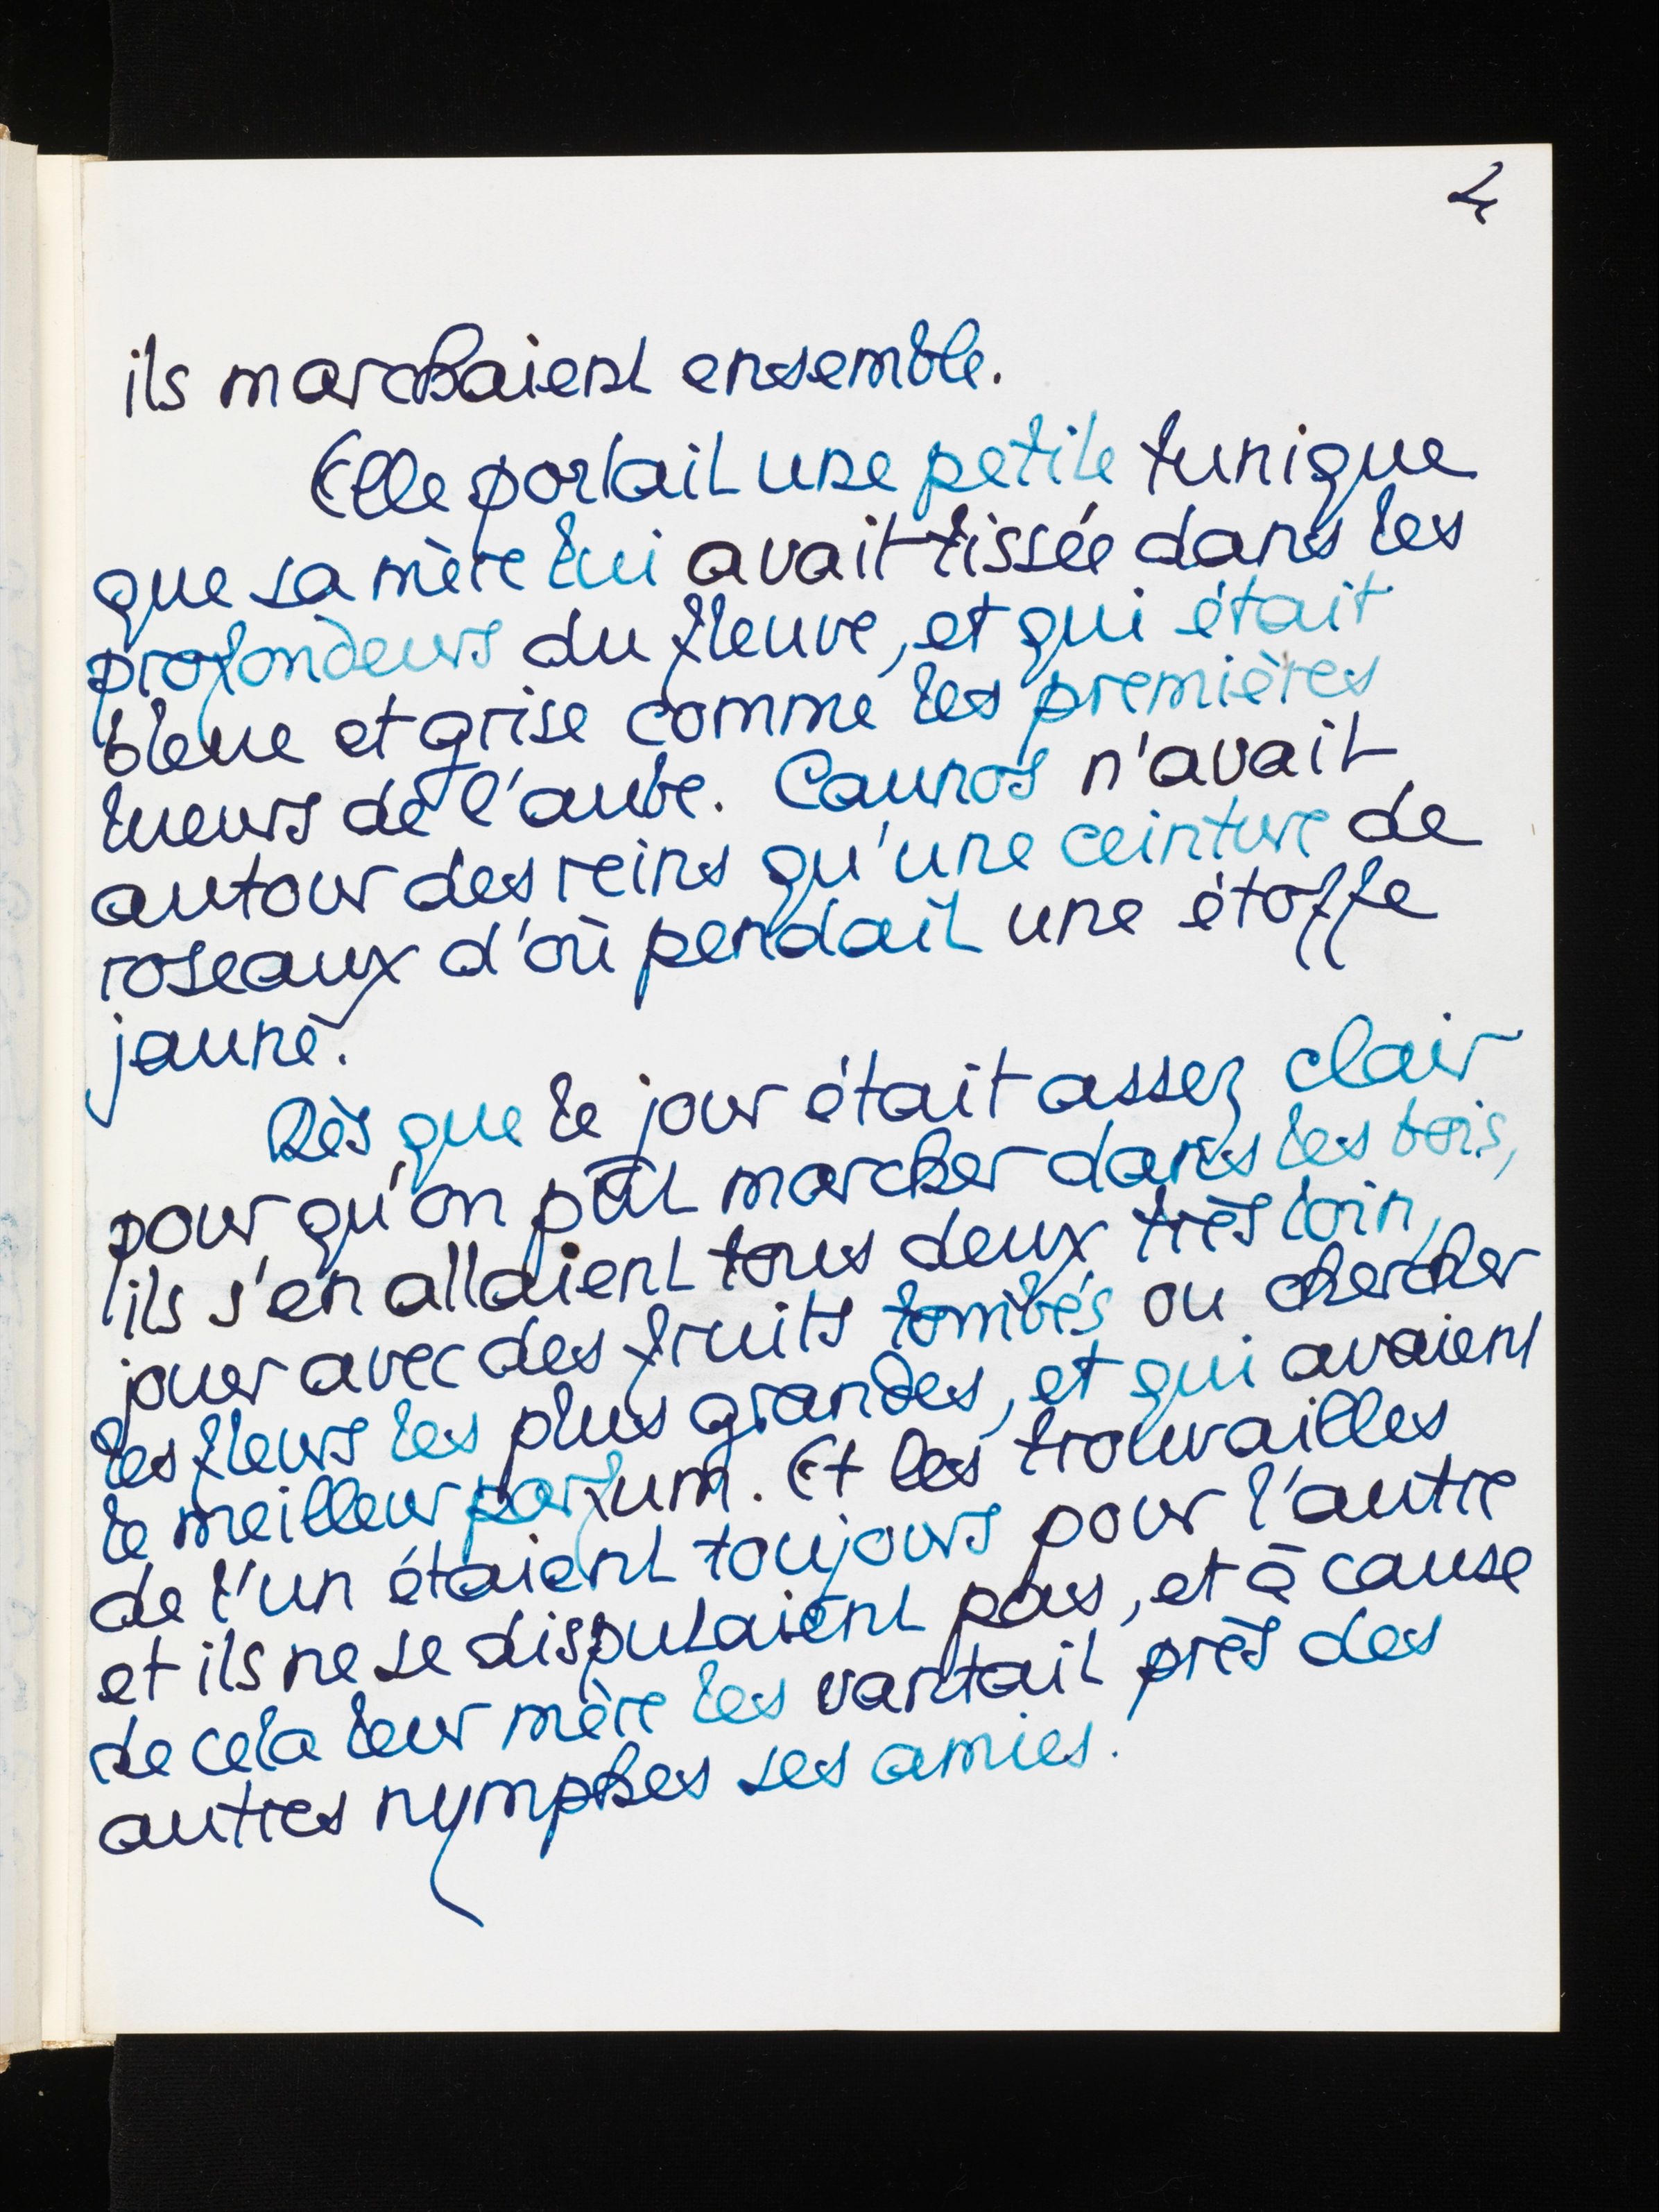 4
ils marchaient ensemble.
Elle portait une petite tunique
que sa mère lui avait tissée dans les
profondeurs du fleuve, et qui était
bleue et grise comme les premières
lueurs de l'aube. Caunos n'avait
autour des reins qu'une ceinture de
roseaux d'où pendait une étoffe
jaune.
Dès que le jour était assez clair
pour qu'on pût marcher dans les bois,
ils s'en allaient tous deux très loin,
jouer avec des fruits tombés ou chercher
les fleurs les plus grandes, et qui avaient
le meilleur parfum. Et les trouvailles
de l'un étaient toujours pour l'autre
et ils ne se disputaient pas, et à cause
de cela leur mère les vantait près des
autres nymphes ses amies.